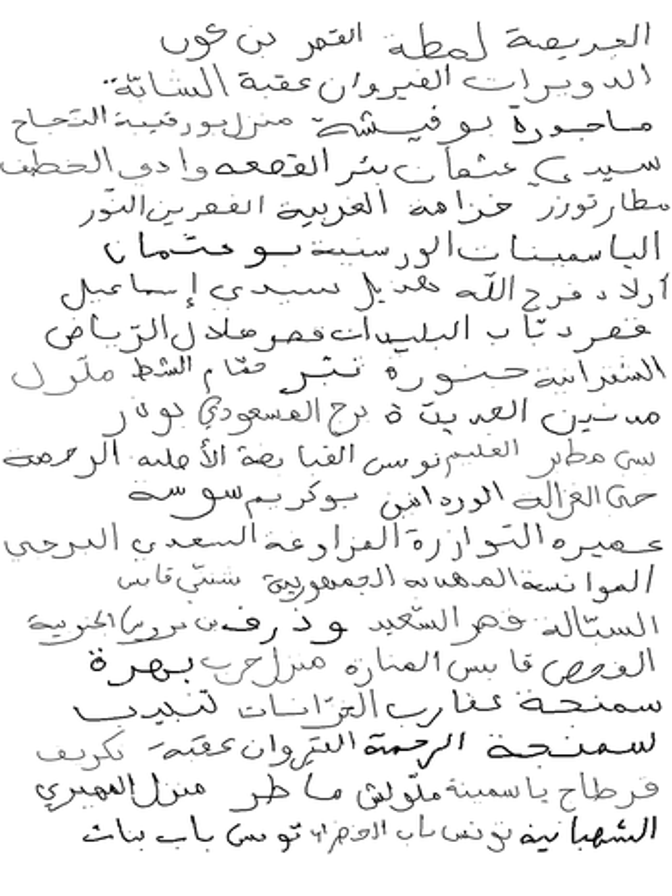 العريضة لمطة القصر بن عون
الدويرات القيروان عقبة الشابّة
ماجورة بوفيشة منزل بورقيبة الدّجاج
سيدي عثمان بئر القصعه وادي الخطف
مطار توزر خزامة الغربية القصرين النّور
الياسمينات الورسنية بوعثمان
أولاد فرج الله هذيل سيدي إسماعيل
قصر دبّاب البليدات قصر هلال الرّياض
الشفرانية حنورة تنبر مقام الشط ملّول
مدنين الحديثة برج المسعودي بوفار
بني مطير العليم تونس القباضة الأصلية الرحمة
حيّ الغزالة الورданين بوكريم سوسة
عميره التوازرة المزاوغة السعدي البرجي
الموانسة المهدية الجمهورية شنني قابس
السبّالة قصر السّعيد وذرف بن عروس الجنوبية
الفحص قابس المنارة منزل حرب بهرة
سمنجة عقارب الخزّانات
سمنجة الرحمة القيروان عقبة تكريف
قرطاج ياسمينة ملّولش ماطر منزل المهيري
الشهبانية تونس باب الخضراء تونس باب بنات